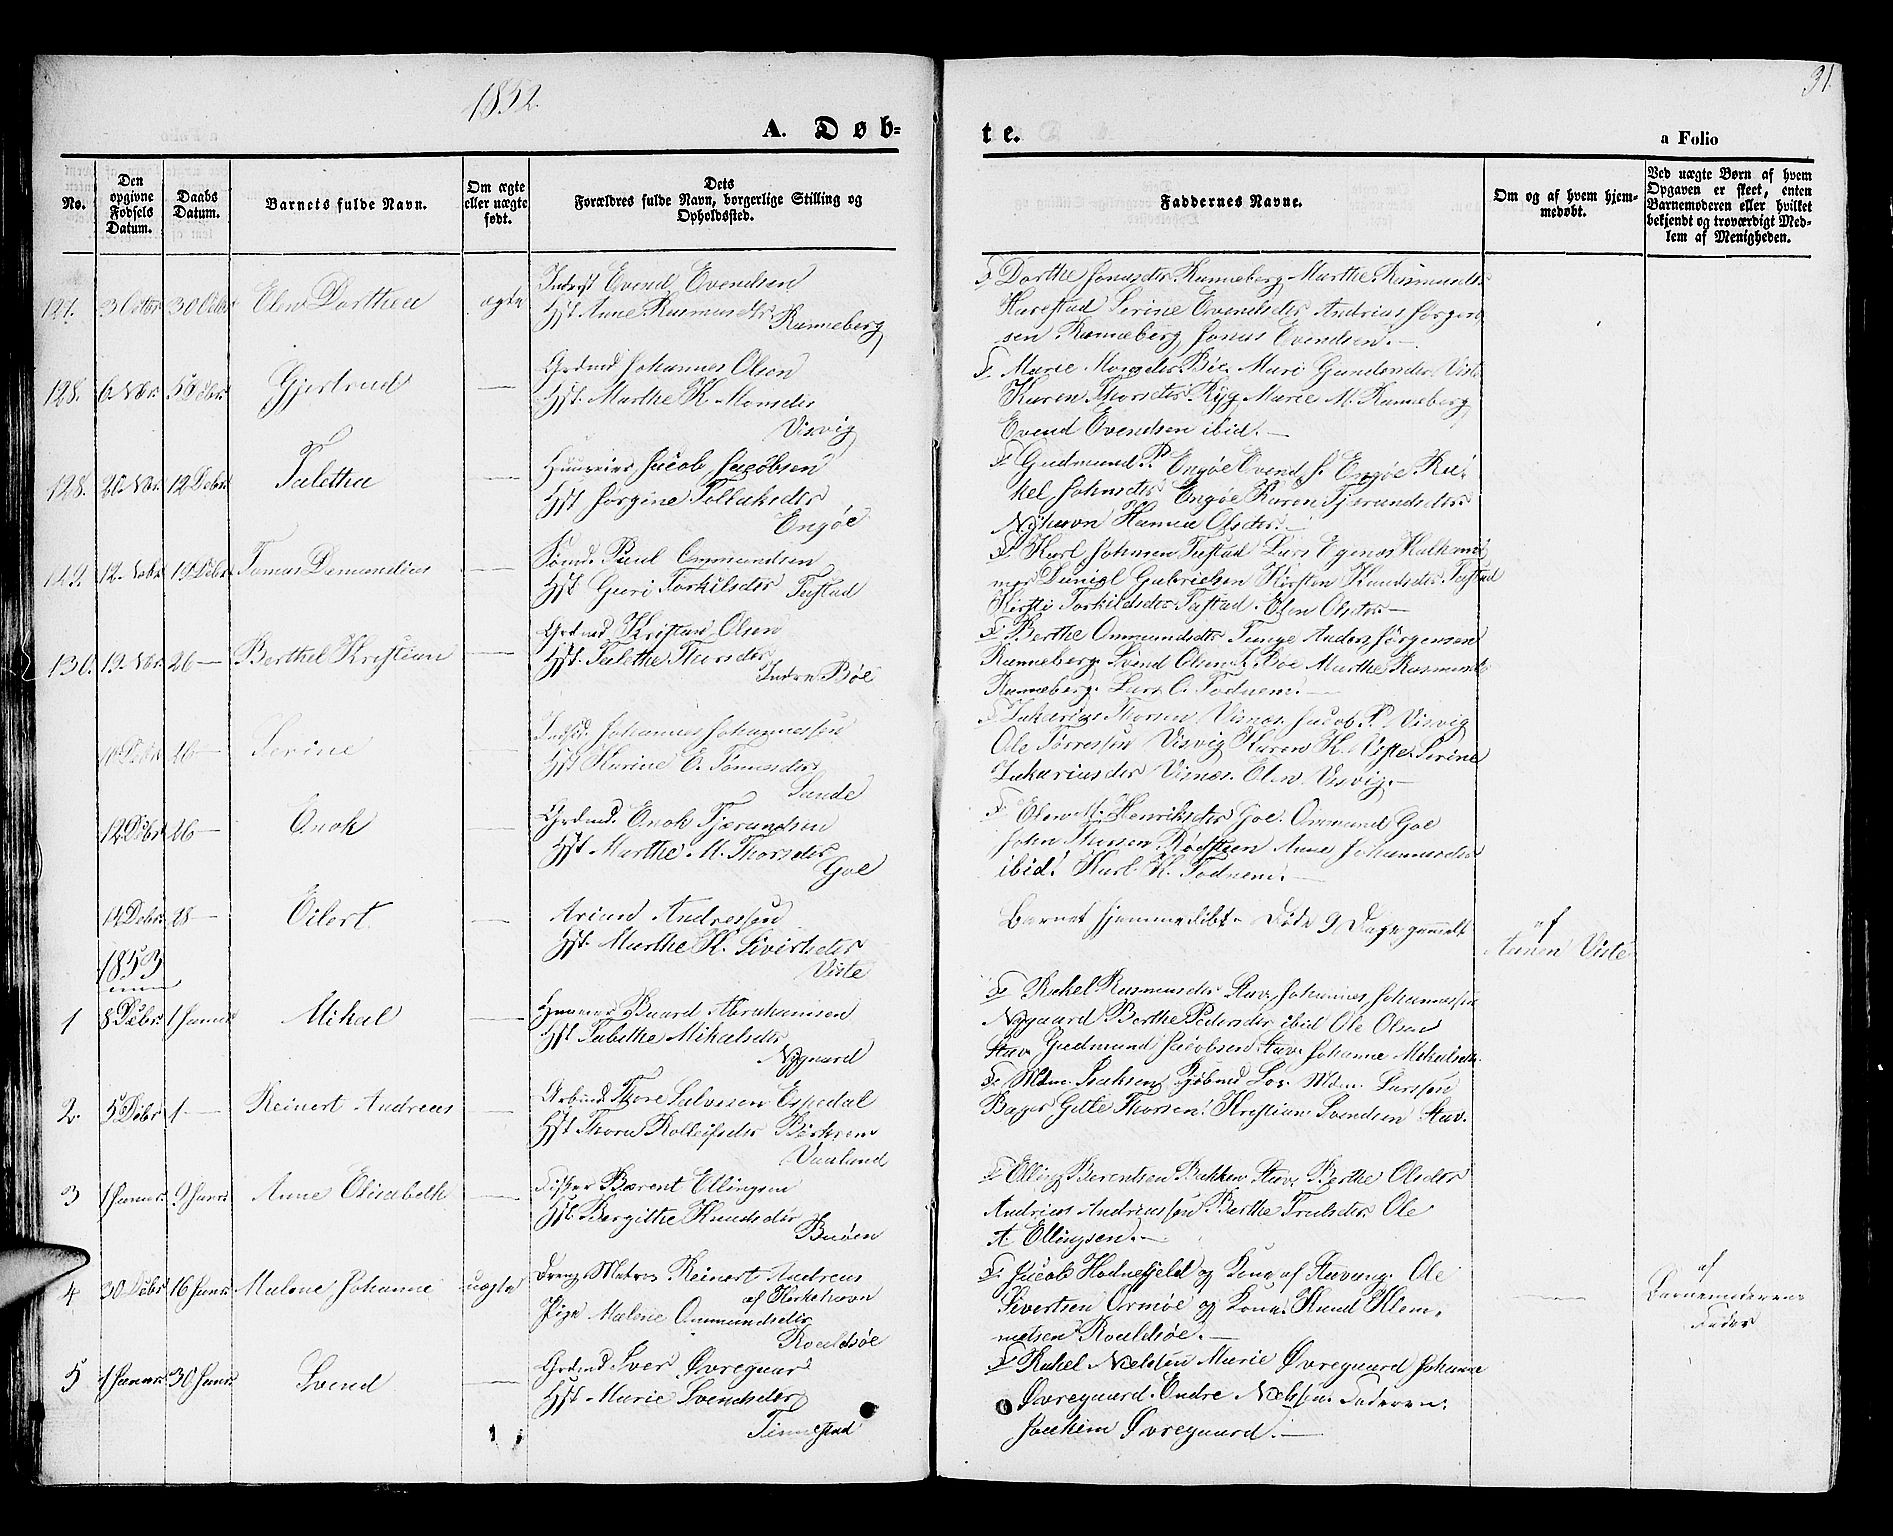 1852.
31.
A. Døb-
te.
a Folio
No.
Den opgivne Fødsels Datum.
Daabs Datum.
Barnets fulde Navn.
Om ægte eller uægte født.
Dets Forældres fulde Navn, borgerlige Stilling og Opholdssted.
Faddernes Navne.
Om og af hvem hjemmedøbt.
Ved uægte Børn af hvem Opgaven er skeet, enten Barnemoderen eller hvilket bekjendt og troværdigt Medlem af Menigheden.
127. 3 Octbr 30 Octbr Elen Dorthea ægte
Evend Evendsen
Hst Anne Rasmusdtr.
Ranneberg
F Dorthe Jonasdtr Ranneberg Marthe Rasmusdtr
Harestad Serine Evendsdtr Andrias Jørgen-
sen Ranneberg Jonas Evendsen.—
128. 6 Nvbr. 5 Debr. Gjertrud —
Grdmd Johannes Olsen
Hst. Marthe K. Monsdtr
Visvig
F. Marie Monsdtr Bøe Mari Gundersdtr Viste
Karen Thorsdtr. Ryg Marie M. Ranneberg
Evend Evendsen ibid.—
128. 20. Nbr. 12 Debr. Taletha —
Huusmd Jacob Jacobsen
Hst Jorgine Tollaksdtr
Engöe
F Gudmund P. Engøe Evend J. Engøe Ra-
kel Johnsdtr Engøe Karen Tjerandsdtr
Nÿhavn Hanna Olsdtr.—
149. 12. Nvbr 19 Debr Tomas Damandius —
Sömd. Paul Ommundsen
Hst Guri Torkilsdtr Tastad
F. Karl Johnsen Tastad Lars Egenæs
Daniel Gabrielsen Kirsten Knudsdtr. Tastad
Kirsti Torkildsdtr Tastad. Elen Olsdtr—
130. 19. Nbr. 26 — Berthel Kristian —
Grdmd Kristian Olsen
Hst. Talethe Thorsdtr
Indre Bøe
F Berthe Ommundsdtr Tunge Anders Jørgensen
Ranneberg. Svend Olsen I. Bøe Marthe Rasmusdtr
Ranneberg. Lars O. Todnem.—
10 Debr 26 — Serine —
Johannes Johannessen
Hst Karine E. Tomasdtr
Sande
F Zakarias Thorsen Visnæs. Jacob P. Visvig
Ole Tørressen Visvig Karen K. Viste. Serine
Zakariasdtr Visnæs. Elen Visvig.—
12 Debr 26 — Enok —
Grdmd. Enok Tjerandsen
Hst Marthe M. Thorsdtr
Goe
F Elen M. Henriksdtr Goe. Ommund Goe
John Thorsen Rødsteen Anne Johannesdtr
ibid. Karl K. Todnem.—
14 Debr 28 — Eilert. —
Andressen
Hst. Marthe K. Sivertsdtr
Viste
Barnet hjemmedøbt. Døde 9 Dage gammelt
af
Viste
1853
1 8 Debr. 1 Januar Mikal —
Baard Abrahamsen
Hst Tabithe Mikalsdtr
Nygaard
F Rakel Rasmusdtr Stav. Johannes Johannessen
Nygaard Berthe Pedersdtr ibid Ole Olsen
Stav. Gudmund Jacobsen Stav. Johanne Mikalsdtr.
2. 5 Debr 1 — Reinert Andreas —
Arbmd Thore Salvesen Espedal
Hst Thora Rolleifsdtr
Vaaland
F. Mdm. Isaksen Kjöbmd Los. Mdm. Larssen
Bager Gitle Thorsen. Kristian Svendsen Stav.
3 1 Januar. 9 Januar Anne Elisabeth —
Fisker Berent Ellingsen
Hst Bergithe Knudsdtr
Buöen
F Elling Berentsen Bakken Stav. Berthe Olsdtr
Andrias Andriassen Berthe Trulsdtr. Ole
A Ellingsen.—
4 30 Debr 16 Januar. Malene Johanne uægte
Dreng Matros Reinert Andreas
af Kirkehavn
Pige Malene Ommundsdtr
Roaldsöe
F. Jacob Hodnefjeld og Kone af Stavang. Ole
Sivertsen Ormöe og Kone. Knud Klem-
metsen Roaldsöe.—
—
af
Barnemoderens
Fader
5 1 Januar. 30 Januar. Svend —
Grdmd Iver Øvregaard
Hst Marie Svendsdtr
Tinnestad
F Rakel Nielsen Marie Øvregaard Johanne
Øvregaard. Endre Nielsen. Faderen.
Joachim Øvregaard.—